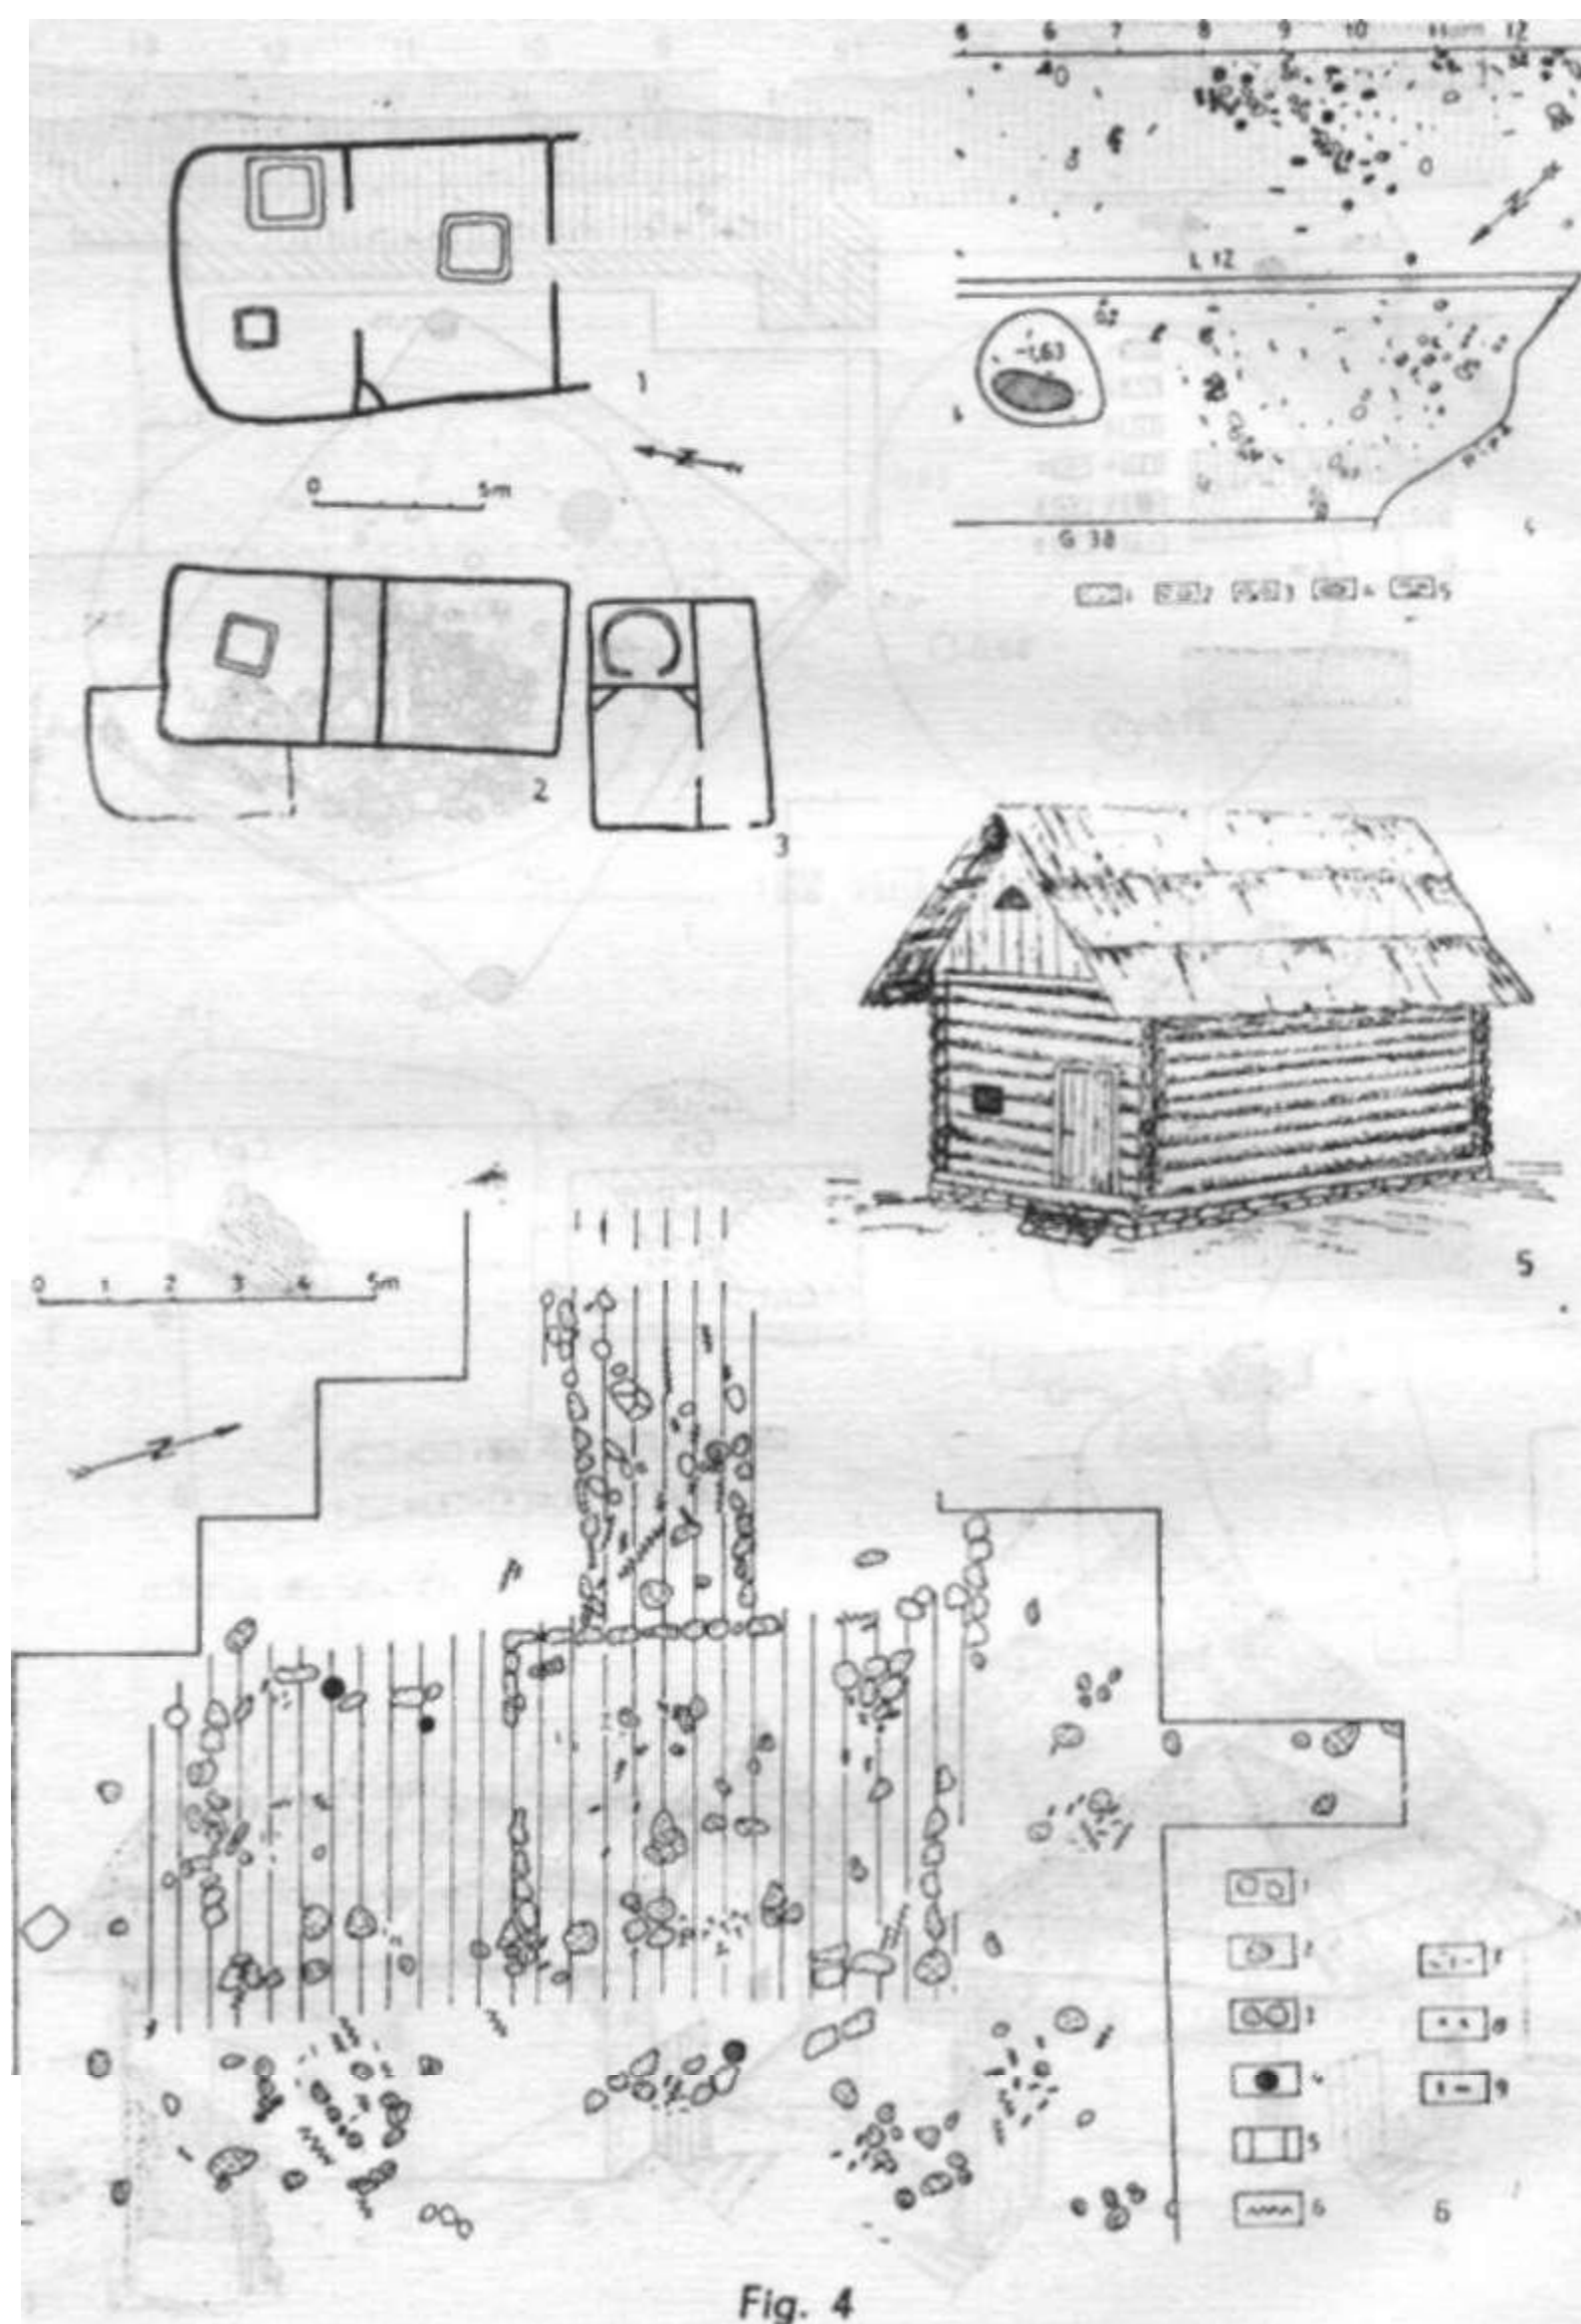 5 6 7 8 9 10 11 12
L 12
-1,63
RIPĂ
G 38
1 2 3 4 5
1
N
0 5m
2
3
5
0 1 2 3 4 5m
N
1
2
3
4
5
6
7
8
9
6
Fig. 4